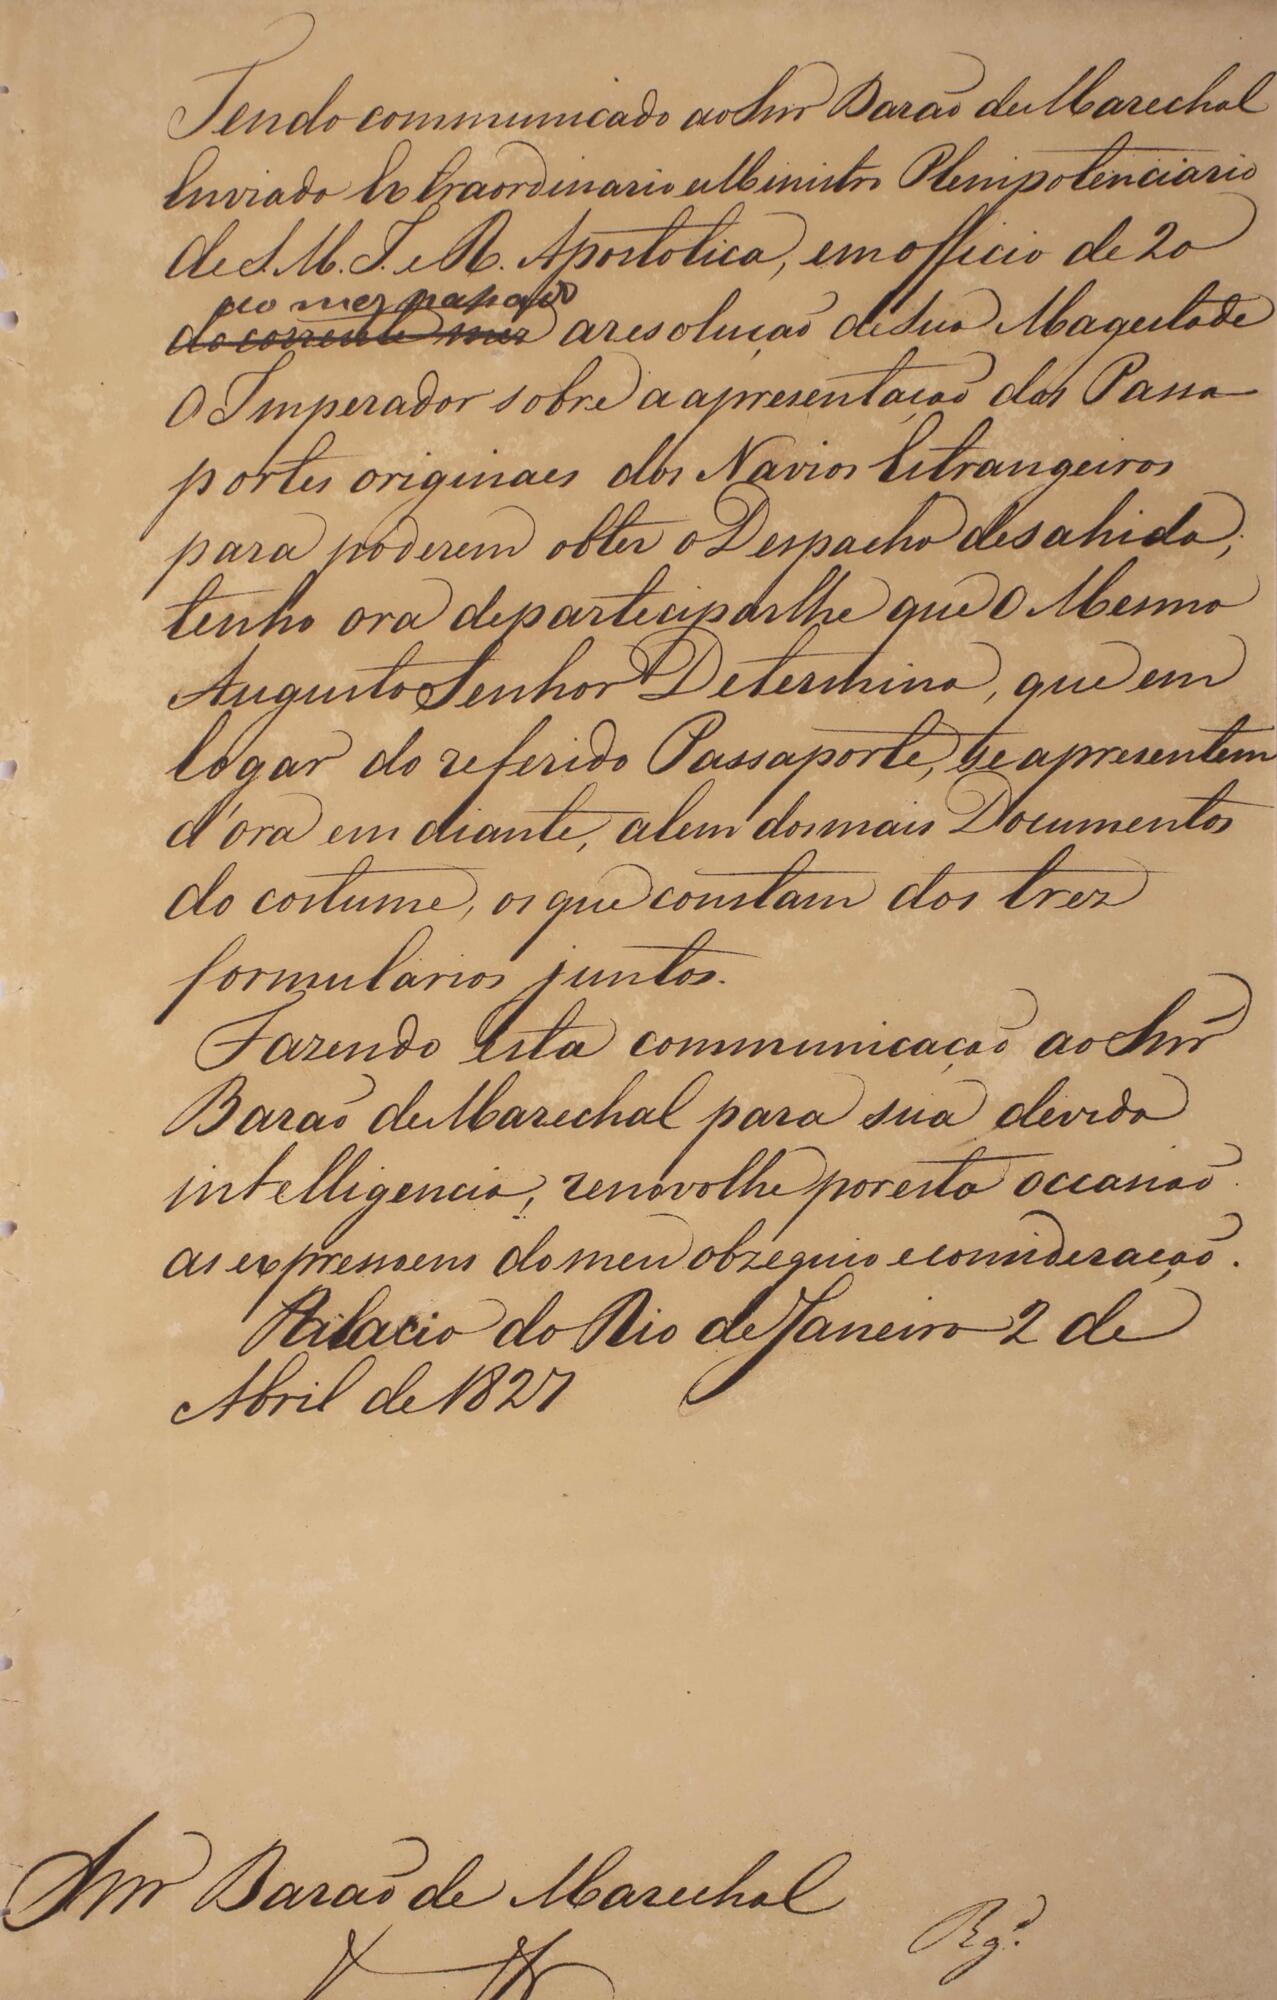 Tendo communicado ao Snr Barão de Marechal
Enviado Extraordinario e Ministro Plenipotenciario
de S. M. I. e R. Apostolica, em officio de 20
do mez passado
do corrente mez a resolução de Sua Magestade
O Imperador sobre a apresentação dos Passa-
portes originaes dos Navios Estrangeiros
para poderem obter o Despacho de sahida,
tenho ora de participarlhe que O Mesmo
Augusto Senhor Determina, que em
logar do referido Passaporte, se apresentem
d'ora em diante, alem dos mais Documentos
do costume, os que constam dos trez
formularios juntos.
Fazendo esta communicação ao Snr
Barão de Marechal para sua devida
intelligencia, renovolhe por esta occasião
as expressoens do meu obzequio e consideração.
Palacio do Rio de Janeiro 2 de
Abril de 1827
Snr Barão de Marechal
Rg.º